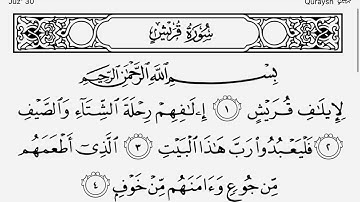 Juz' 30 Quraysh قريش
سُورَةُ قُرَيْشٍ
بِسْمِ ٱللَّهِ ٱلرَّحْمَٰنِ ٱلرَّحِيمِ
لِإِيلَٰفِ قُرَيْشٍ ١ إِۦلَٰفِهِمْ رِحْلَةَ ٱلشِّتَآءِ وَٱلصَّيْفِ
٢ فَلْيَعْبُدُوا۟ رَبَّ هَٰذَا ٱلْبَيْتِ ٣ ٱلَّذِىٓ أَطْعَمَهُم
مِّن جُوعٍ وَءَامَنَهُم مِّنْ خَوْفٍۭ ٤